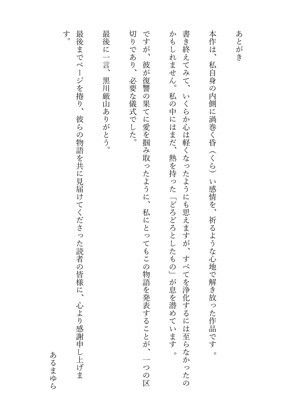 あとがき
本作は、私自身の内側に渦巻く昏（くら）い感情を、祈るような心地で解き放った作品です。
書き終えてみて、いくらか心は軽くなったようにも思えますが、すべてを浄化するには至らなかったの
かもしれません。私の中にはまだ、熱を持った「どろどろとしたもの」が息を潜めています。
ですが、彼が復讐の果てに愛を掴み取ったように、私にとってもこの物語を発表することが、一つの区
切りであり、必要な儀式でした。
最後に一言、黒川厳山ありがとう。
最後までページを捲り、彼らの物語を共に見届けてくださった読者の皆様に、心より感謝申し上げま
す。
あるまゆら